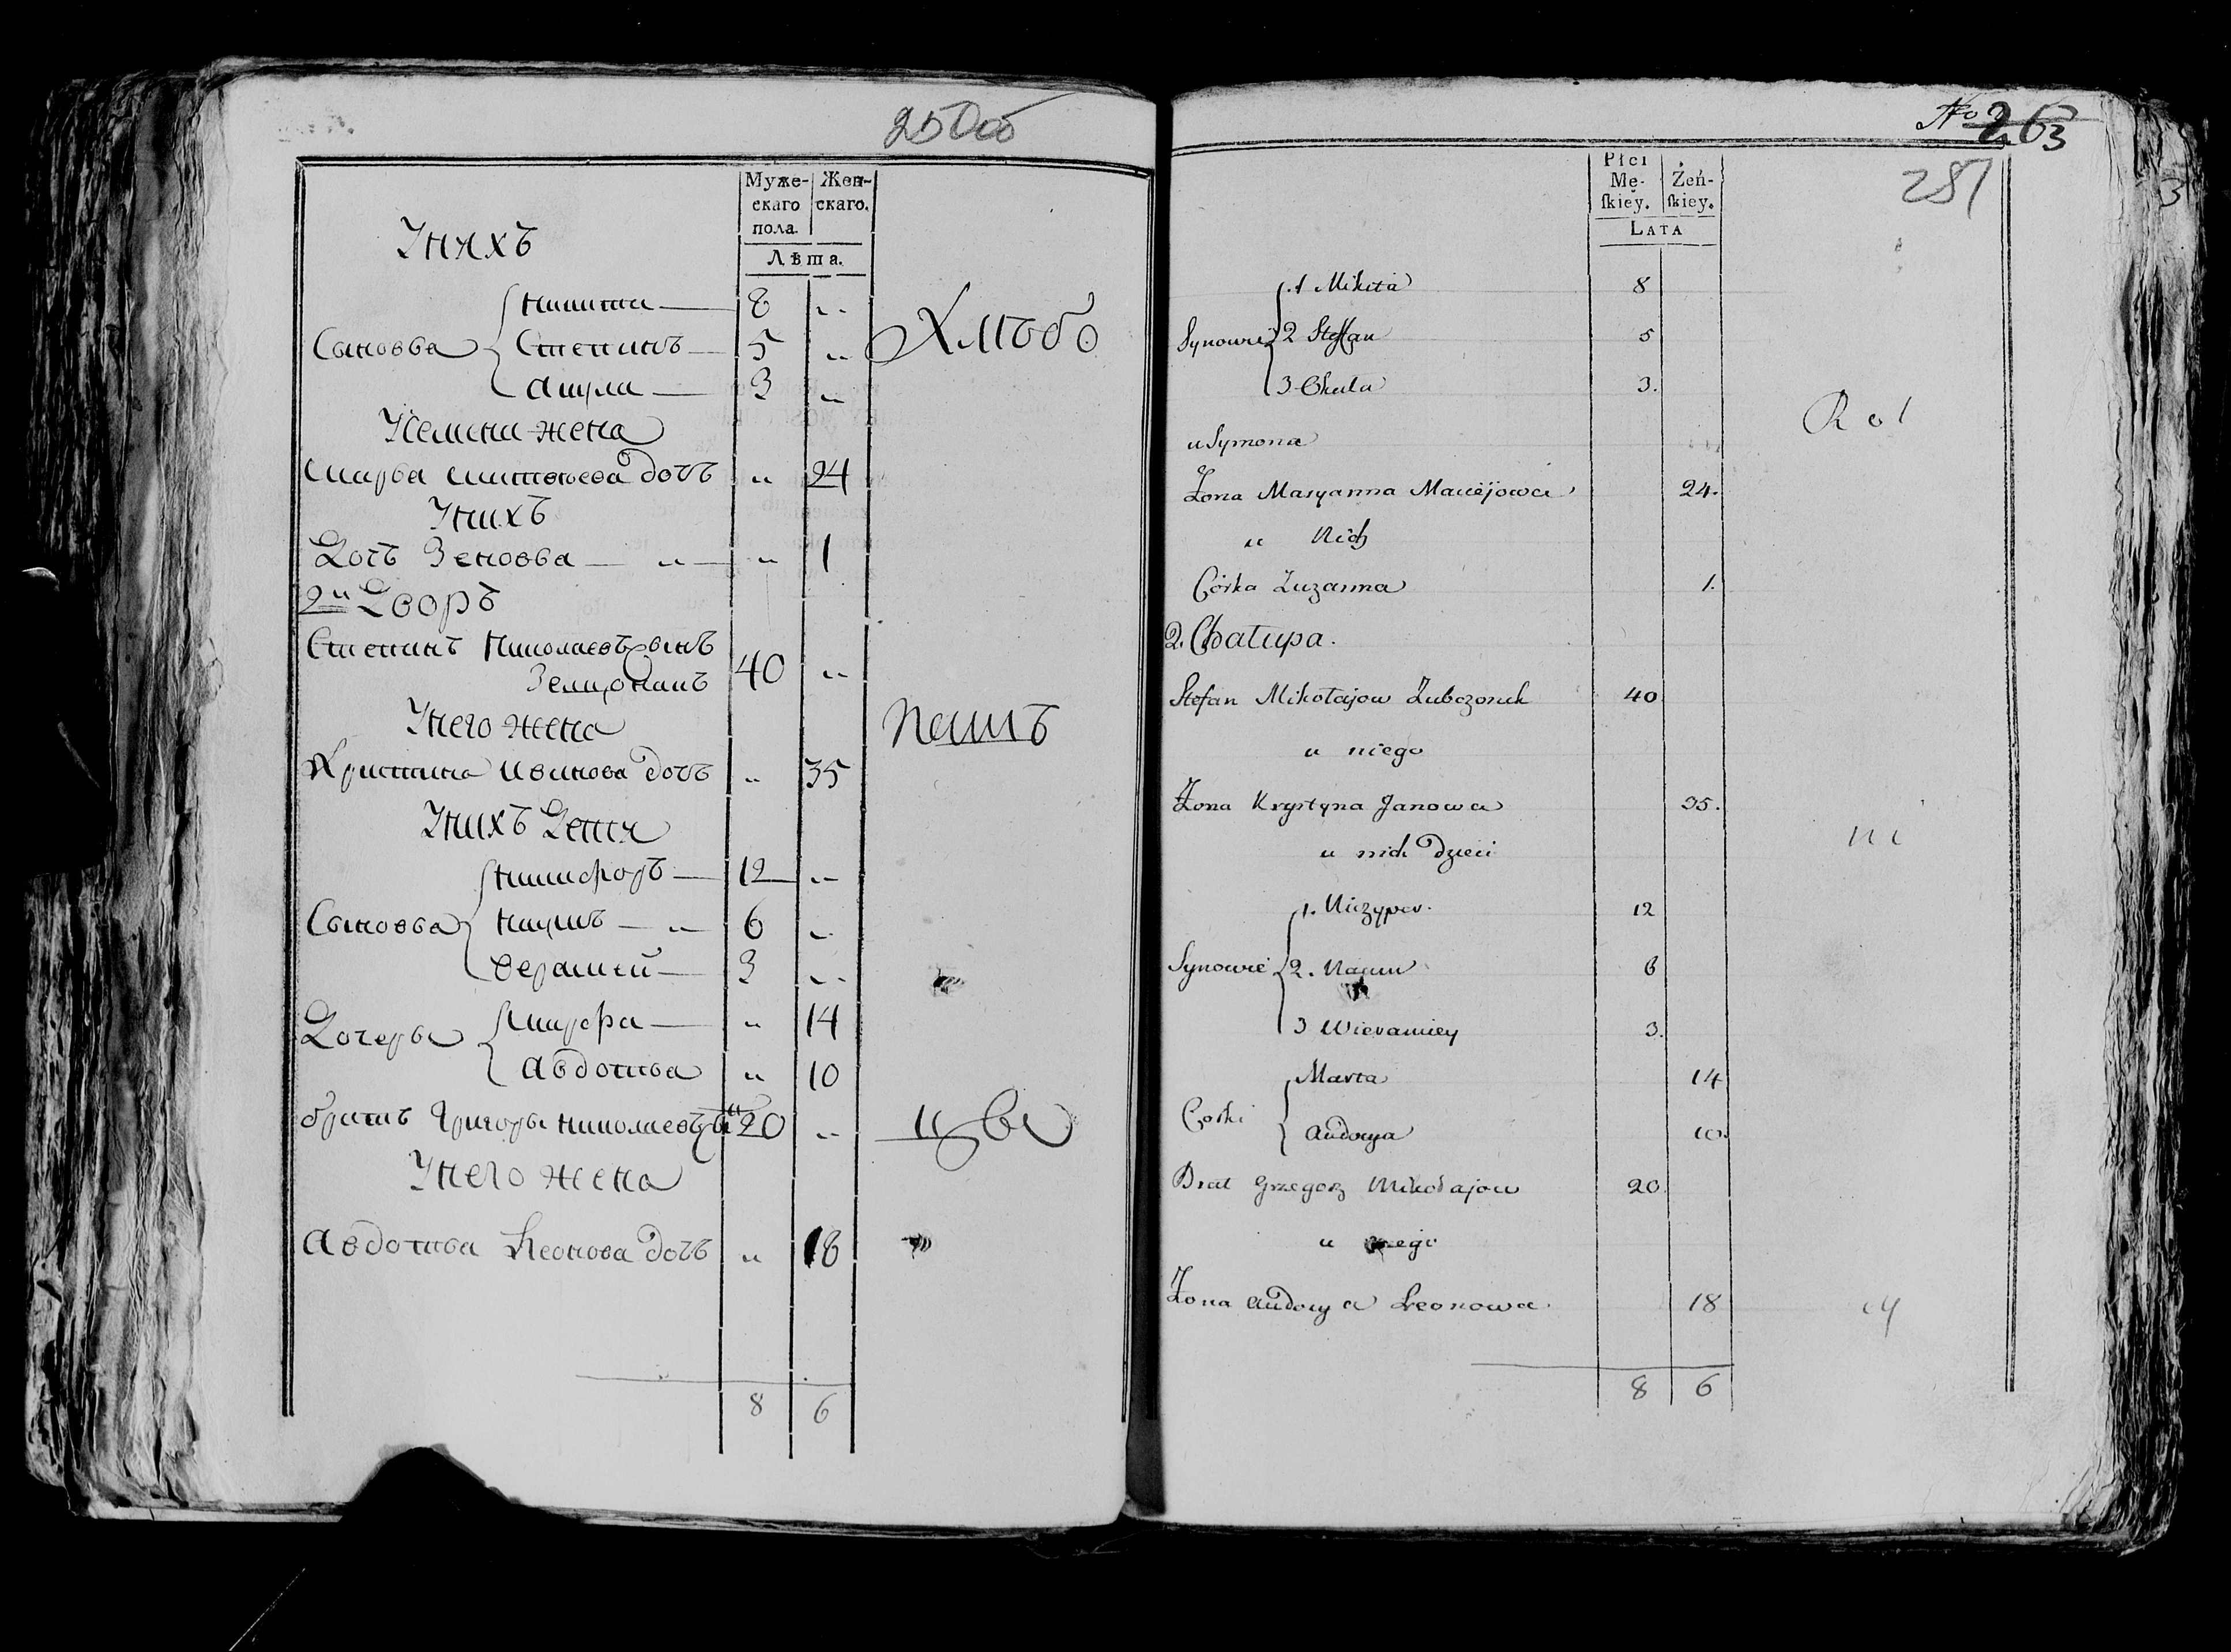 250об
Муже-
скаго
пола.
Жен-
скаго.
Лѣта.
Унихъ
Сыновва
Никита 8
Степанъ 5
Акула 3
Хлѣбо
Усемена жена
Марва Матвѣева дочъ 24
Унихъ
Дочъ Зеновва 1
2й Дворъ
Степанъ Николаевъ сынъ 40
Унего жена
Пашъ
Кристина Иванова дочъ 35
Унихъ Дети
Сыновва
Никифоръ 12
Наумъ 6
Еерамей 3
Дочеры
Марфа 14
Авдотва 10
братъ Григоры Николаевъ сы 20
цы
Унего жена
Авдотва Леонова дочъ 18
8 6
No 2
263
281
Płci
Mę-
ſkiey.
Żeń-
ſkiey.
LATA
Synowie
1 Mikita 8
2 Steffan 5
3 Okula 3.
Rol
u Symona
Żona Maryanna Maciejowa 24.
u Nich
Córka Zuzanna 1.
2. Chałupa.
Stefan Mikołajow Zubczonek 40
u niego
Żona Krystyna Janowa 35.
u nich Dzieci
ni
Synowie
1. Niczypor. 12
2. Naum 6
3 Wieramiey 3.
Corki
Marta 14
Audocya 10.
Brat Grzegorz Mikołajow 20.
u niego
Żona Audocya Leonowa. 18
cy
8 6